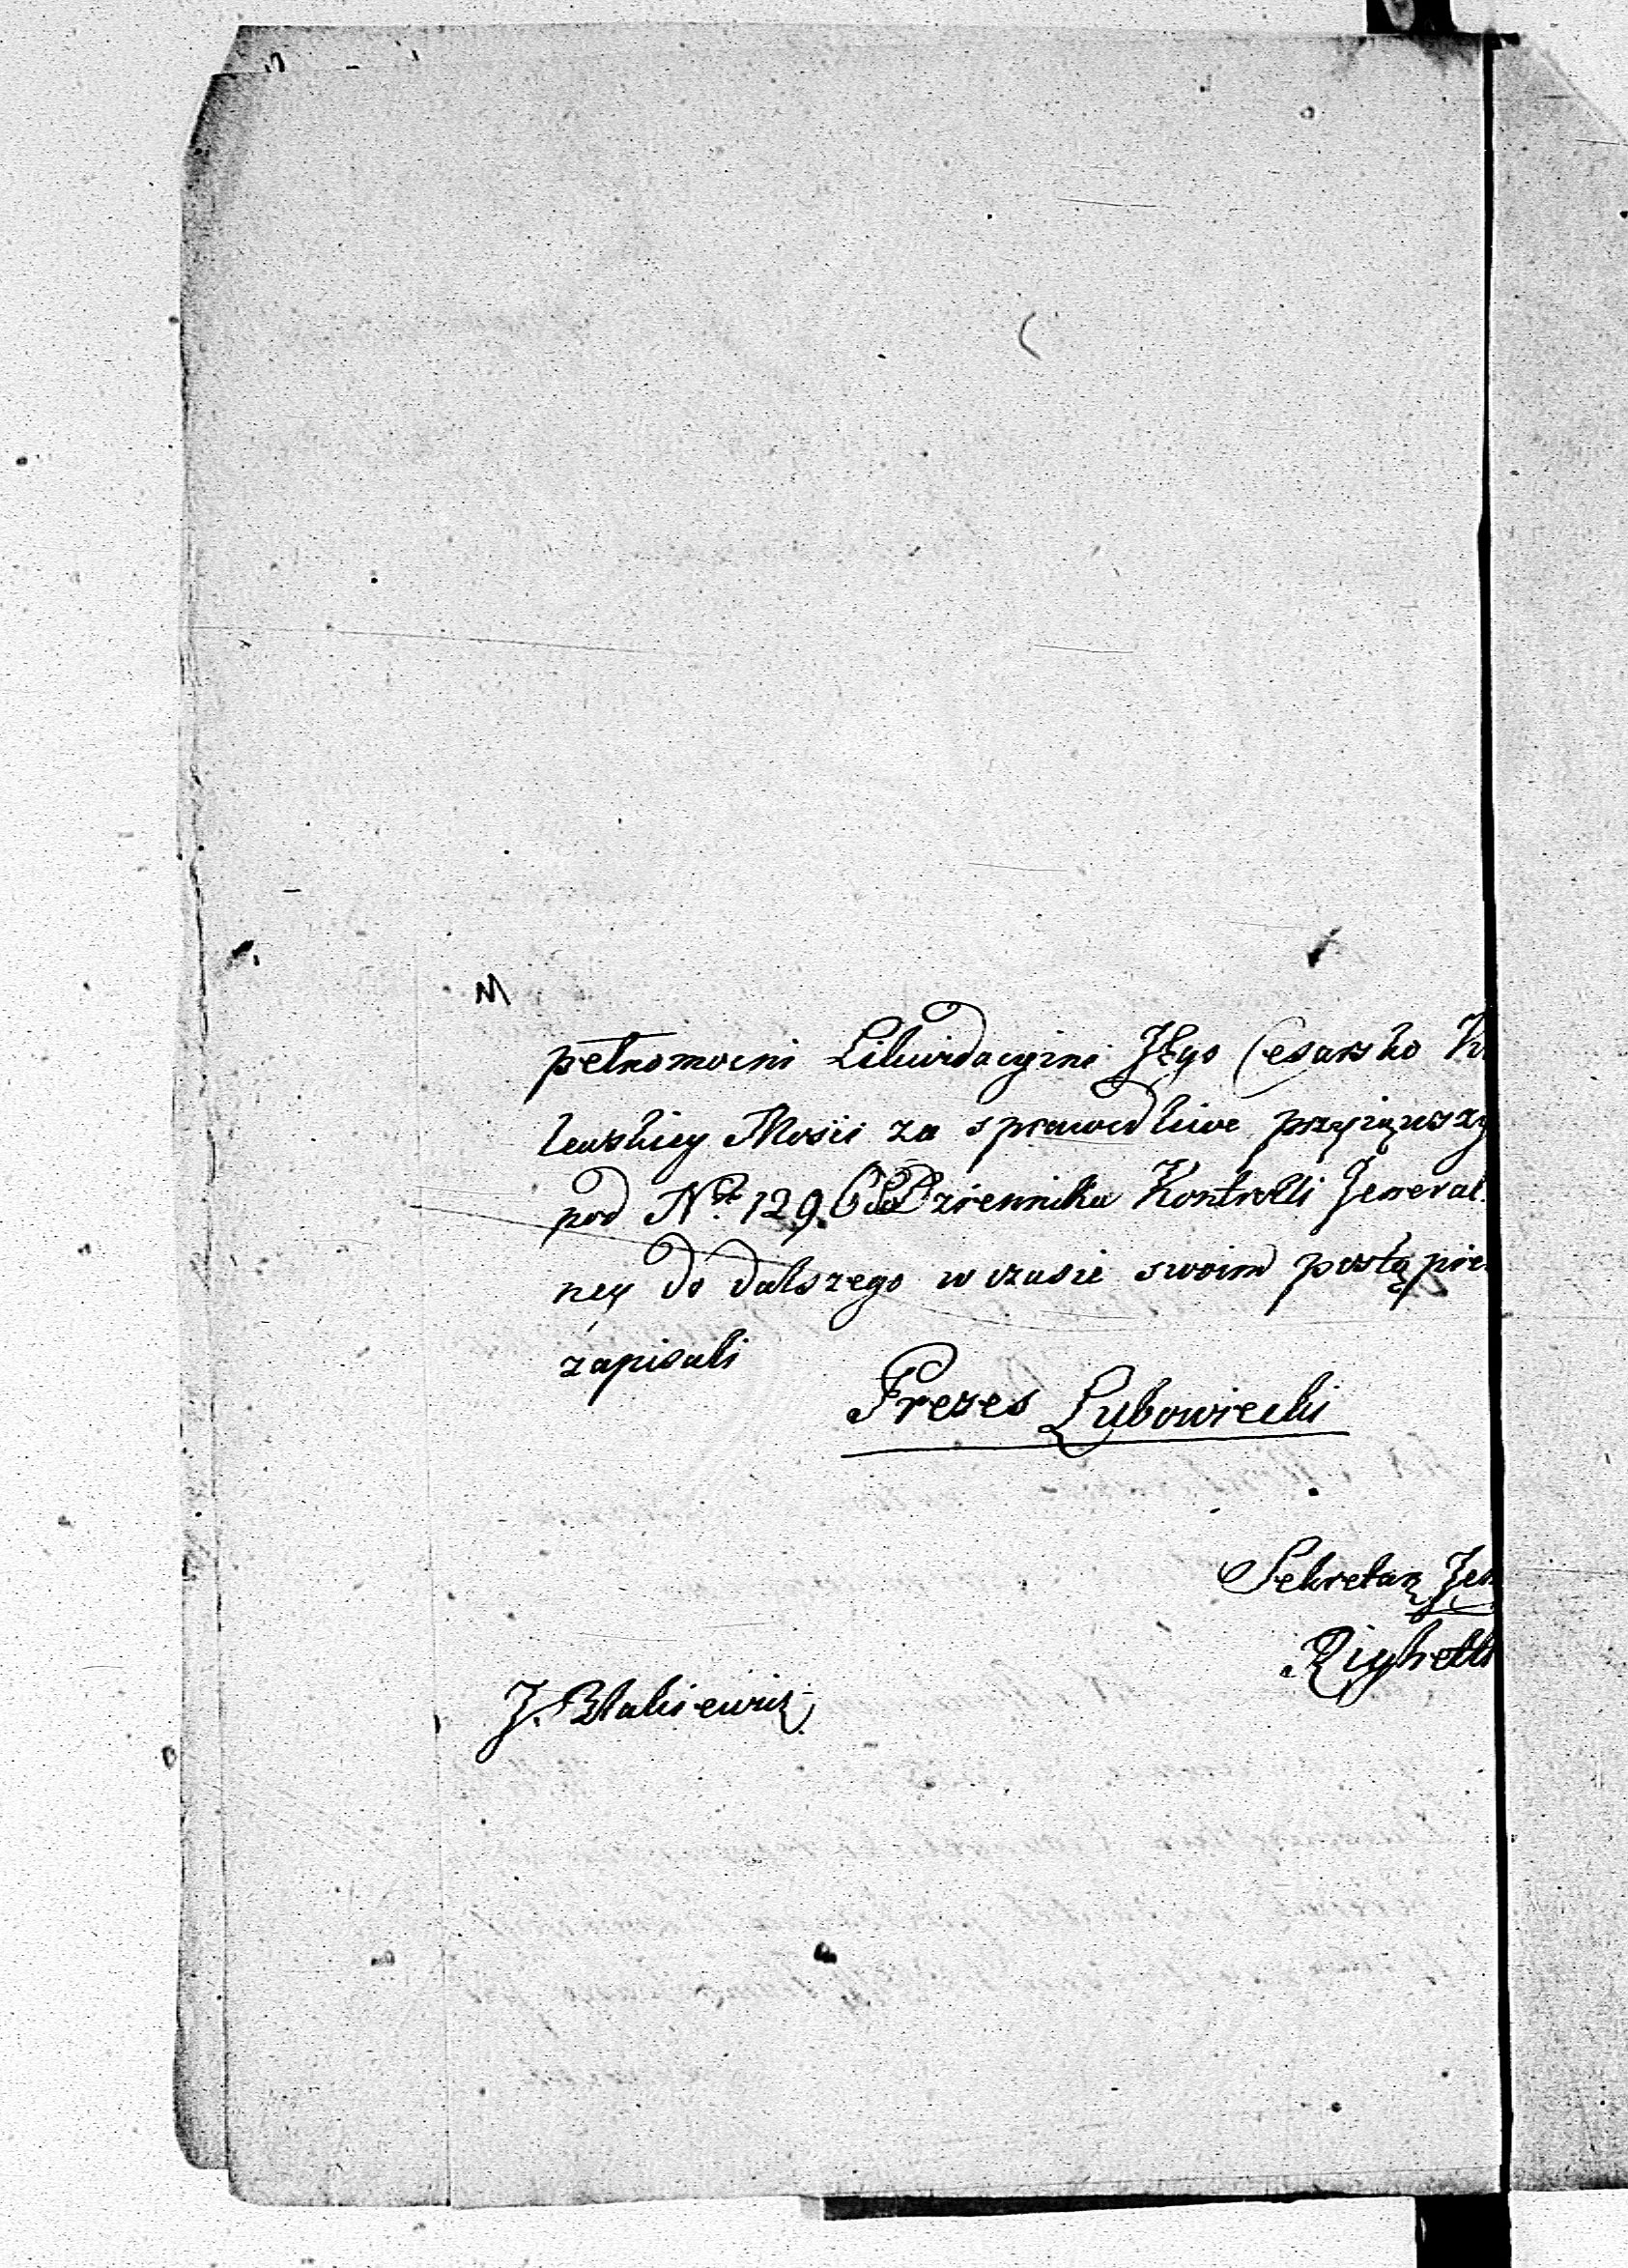 pełnomocni Likwidacyjni JEgo Cesarsko K
lewskiey Mości za sprawedliwe przyjąwszy
pod Nr. 1296 Dziennika Kontrolli Jeneral
ney do dalszego w czasie swoim postąpie
zapisali
Prezes Lubowiecki
Sekretarz Jen
Righetti
J. Blakiewicz